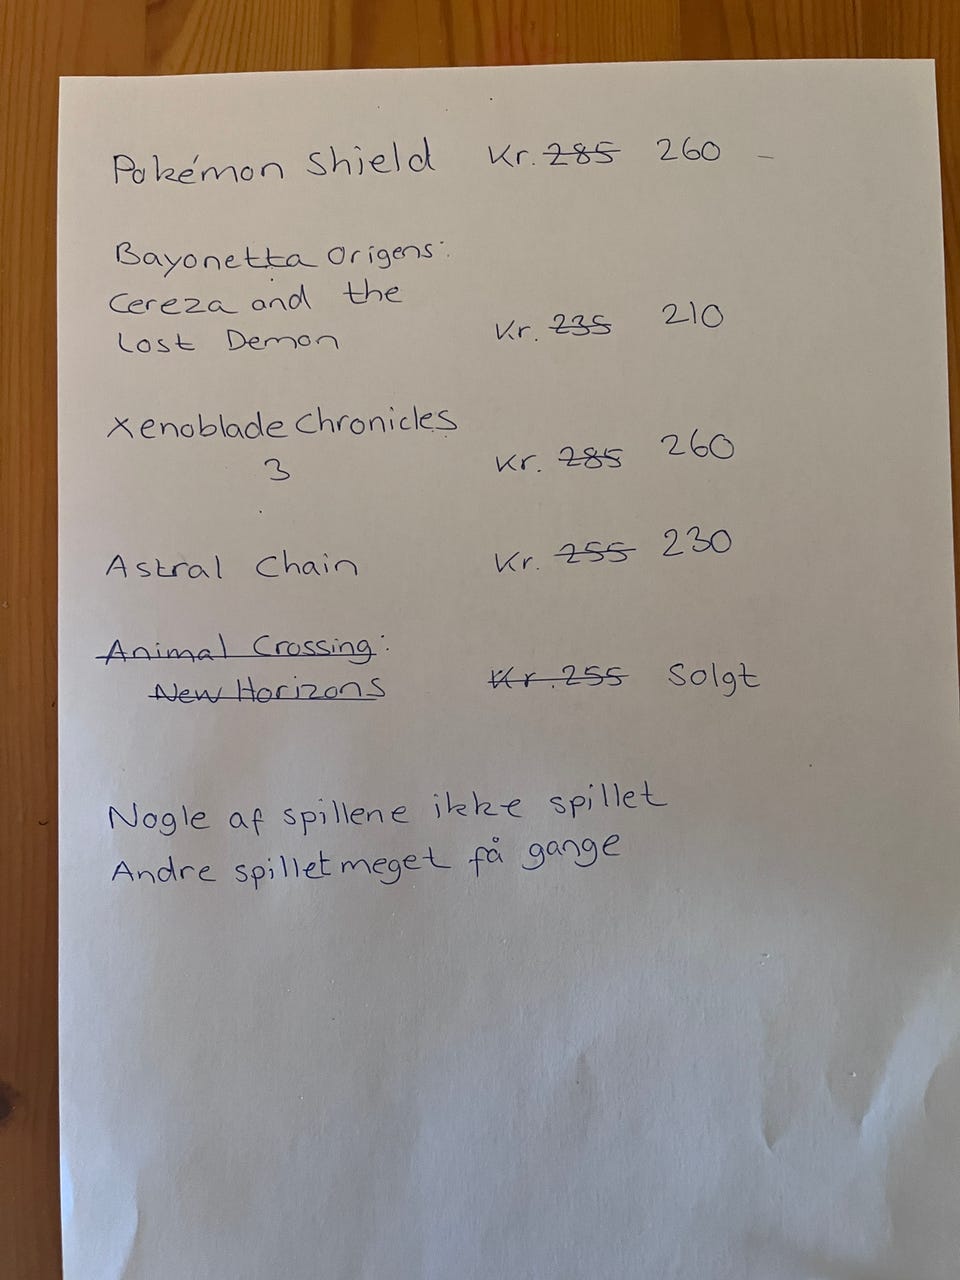 Pokémon Shield Kr. 285 260 –
Bayonetta Origens:
Cereza and the
Lost Demon Kr. 235 210
Xenoblade Chronicles
3 Kr. 285 260
Astral Chain Kr. 255 230
Animal Crossing:
New Horizons Kr. 255 Solgt
Nogle af spillene ikke spillet
Andre spillet meget få gange